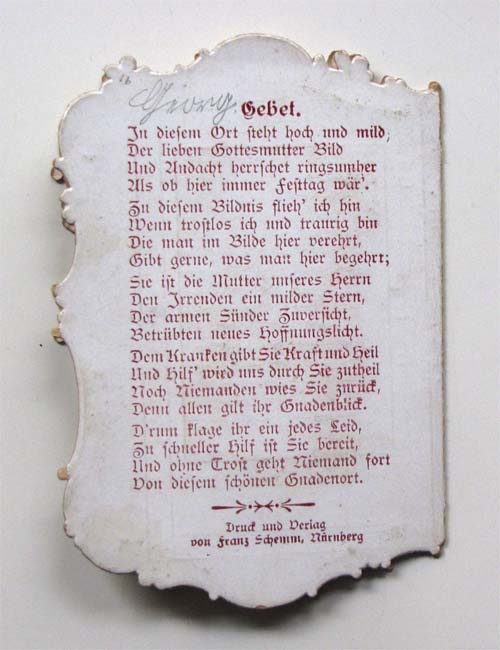 Georg.
Gebet.
In diesem Ort steht hoch und mild,
Der lieben Gottesmutter Bild
Und Andacht herrschet ringsumher
Als ob hier immer Festtag wär'.
Zu diesem Bildnis flieh' ich hin
Wenn trostlos ich und traurig bin
Die man im Bilde hier verehrt,
Gibt gerne, was man hier begehrt;
Sie ist die Mutter unseres Herrn
Den Irrenden ein milder Stern,
Der armen Sünder Zuversicht,
Betrübten neues Hoffnungslicht.
Dem Kranken gibt Sie Kraft und Heil
Und Hilf' wird uns durch Sie zutheil
Noch Niemanden wies Sie zurück,
Denn allen gilt ihr Gnadenblick.
D'rum klage ihr ein jedes Leid,
Zu schneller Hilf ist Sie bereit,
Und ohne Trost geht Niemand fort
Von diesem schönen Gnadenort.
Druck und Verlag
von Franz Schemm, Nürnberg